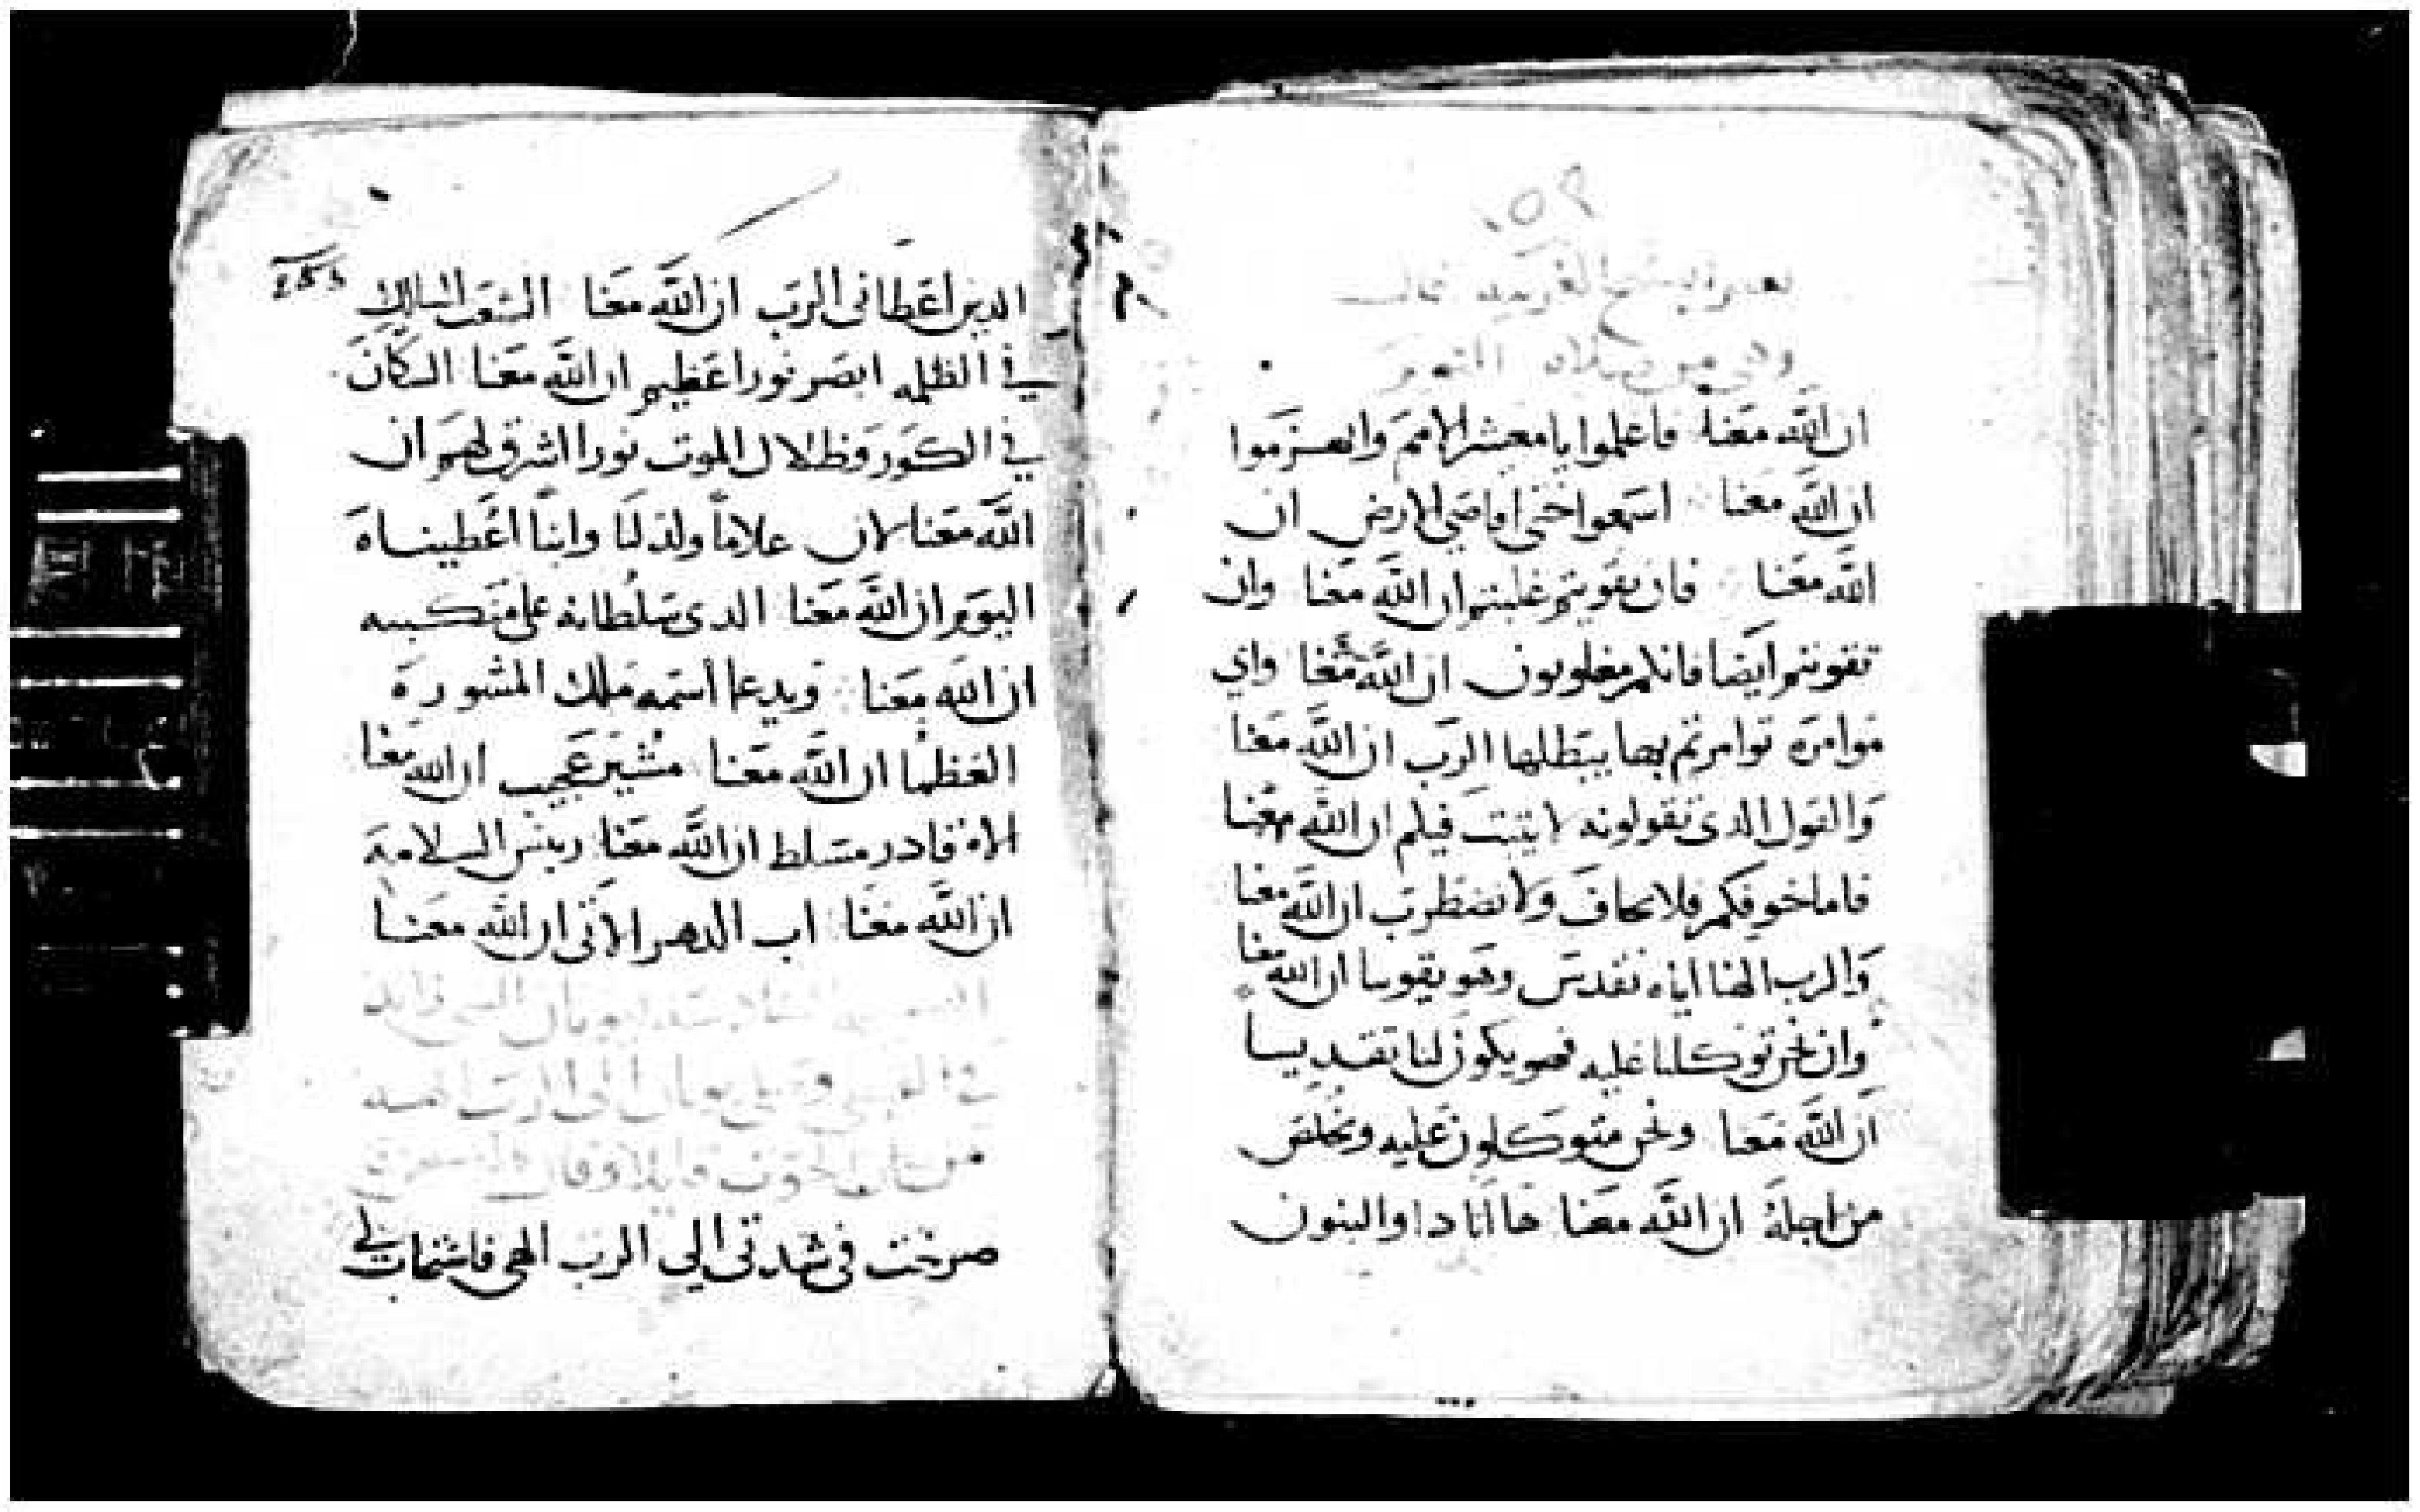 ان الله معنا فاعلموا يا معشر الامم وانهزموا
ان الله معنا اسمعوا حتى اقاصي الارض ان
الله معنا فان تقويتم غلبتم ان الله معنا وان
تقويتم ايضا فانكم مغلوبون ان الله معنا واي
موامره توامرتم بها يبطلها الرب ان الله معنا
والقول الدى تقولونه لا يتبت فيكم ان الله معنا
فاما خوفكم فلا نخاف ولا نضطرب ان الله معنا
والرب الهنا اياه نقدس وهو يقوينا ان الله معنا
وان نحن توكلنا عليه فهو يكون لنا تقديسا
ان الله معنا ونحن متوكلون عليه ونخلص
من اجله ان الله معنا ها انا دا والبنون
253
الدين اعطانى الرب ان الله معنا الشعب السالك
في الظلمه ابصر نورا عظيم ان الله معنا السكان
في الكور وظلال الموت نورا اشرق لهم ان
الله معنا لان غلاما ولد لنا وابنا اعطيناه
اليوم ان الله معنا الدى سلطانه على منكبيه
ان الله معنا ويدعا اسمه ملك المشوره
العظما ان الله معنا مشير عجيب ان الله معنا
الاه قادر مسلط ان الله معنا رييس السلامه
ان الله معنا اب الدهر الاتى ان الله معنا
صرخت فى شدتى الي الرب الهى فاستجاب لي